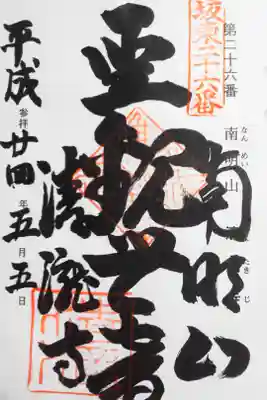 坂東二十六番
第二十六番
南明山
なんめい
たきじ
南明山
聖観世音
清瀧寺
平成廿四年五月五日
参拝